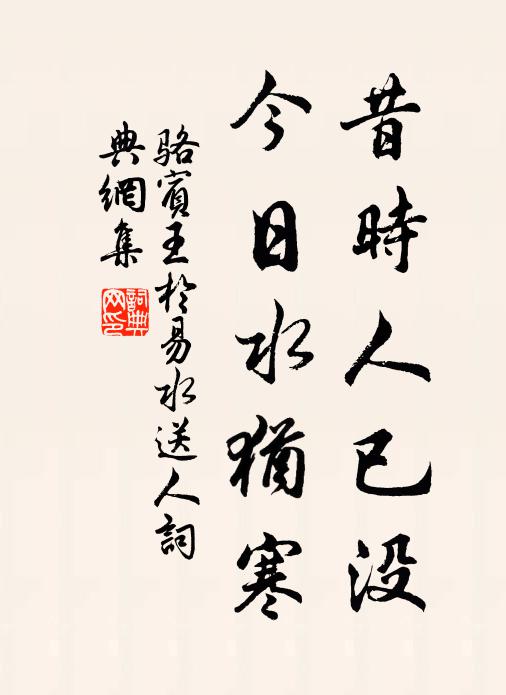 昔時人已没
今日水猶寒
駱賓王於易水送人詞
典網集
詞典網印